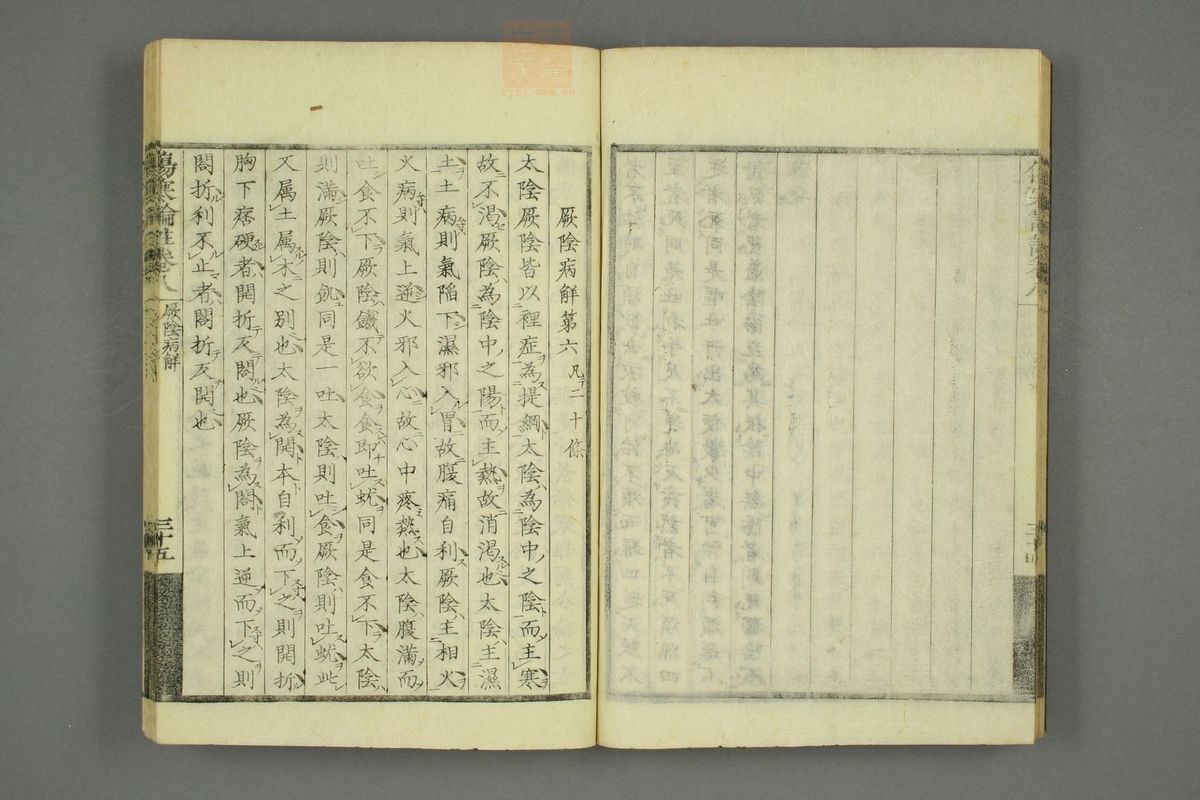 厥陰病解第六 凡二十條
太陰厥陰皆以裡症為提綱太陰為陰中之陰而主寒
故不渴厥陰為陰中之陽而主熱故消渴也太陰主濕
土土病則氣陷下濕邪入胃故腹痛自利厥陰主相火
火病則氣上逆火邪入心故心中疼熱也太陰腹滿而
吐食不下厥陰饑不欲食食即吐蚘同是食不下太陰
則滿厥陰則飢同是一吐太陰則吐食厥陰則吐蚘此
又属土属木之别也太陰為開本自利而下之則開折
胸下痞硬者開折反闔也厥陰為闔氣上逆而下之則
闔折利不止者闔折反開也
傷寒論註卷八
厥陰病解
三十五
三十四
zysj.com.cn